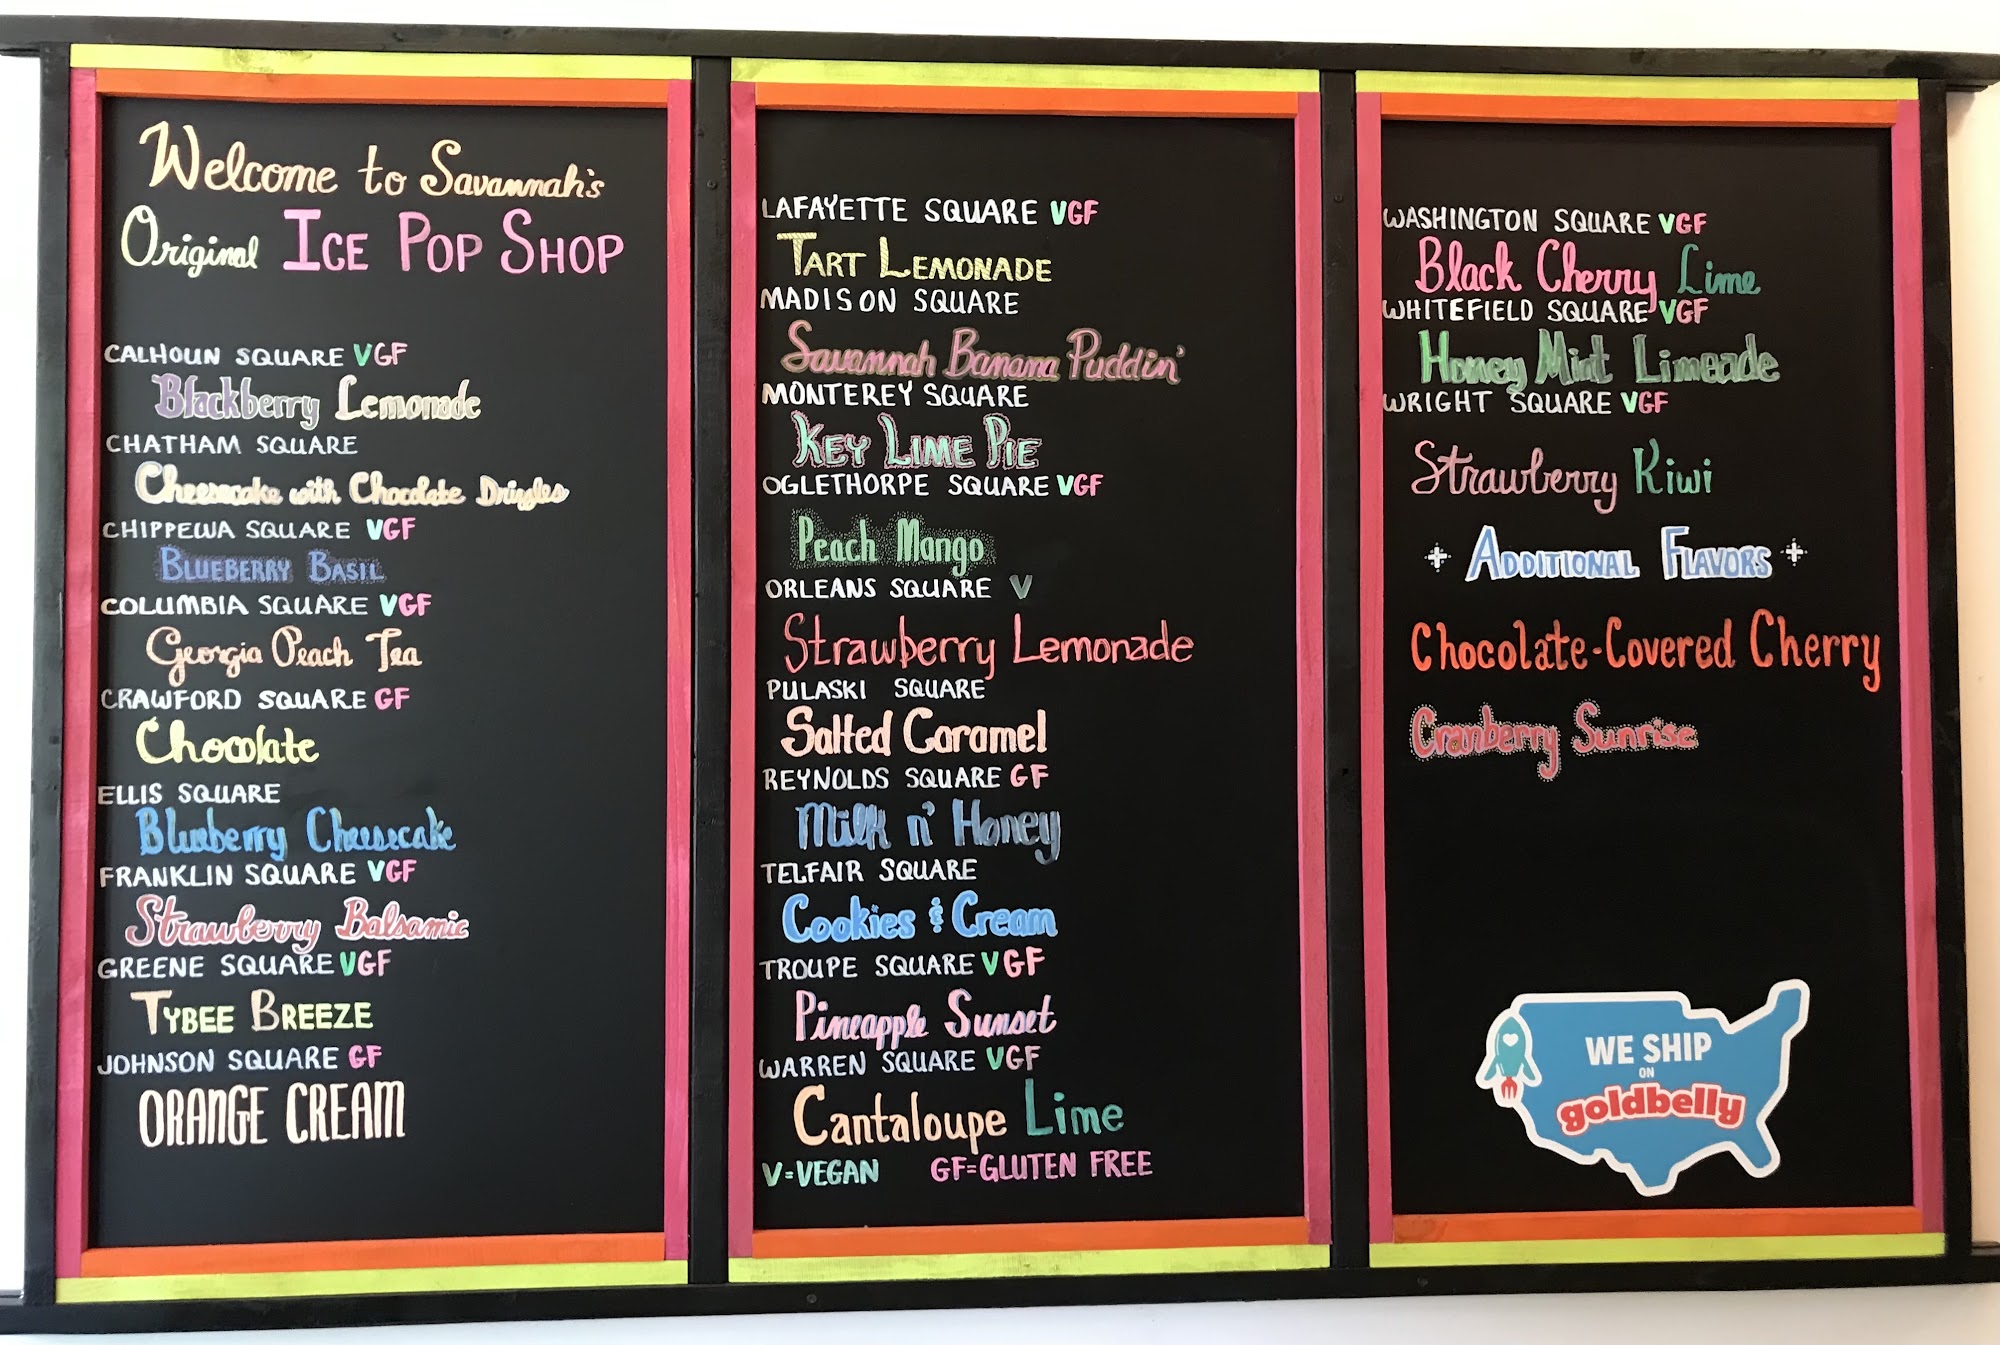 Welcome to Savannah's
Original ICE POP SHOP
CALHOUN SQUARE VGF
Blackberry Lemonade
CHATHAM SQUARE
Cheesecake with Chocolate Dringles
CHIPPEWA SQUARE VGF
BLUEBERRY BASIL
COLUMBIA SQUARE VGF
Georgia Peach Tea
CRAWFORD SQUARE GF
Chocolate
ELLIS SQUARE
Blueberry Cheesecake
FRANKLIN SQUARE VGF
Strawberry Balsamic
GREENE SQUARE VGF
TYBEE BREEZE
JOHNSON SQUARE GF
ORANGE CREAM
LAFAYETTE SQUARE VGF
TART LEMONADE
MADISON SQUARE
Savannah Banana Puddin'
MONTEREY SQUARE
KEY LIME PIE
OGLETHORPE SQUARE VGF
Peach Mango
ORLEANS SQUARE V
Strawberry Lemonade
PULASKI SQUARE
Salted Caramel
REYNOLDS SQUARE GF
Milk n' Honey
TELFAIR SQUARE
Cookies & Cream
TROUPE SQUARE VGF
Pineapple Sunset
WARREN SQUARE VGF
Cantaloupe Lime
V=VEGAN GF=GLUTEN FREE
WASHINGTON SQUARE VGF
Black Cherry Lime
WHITEFIELD SQUARE VGF
Honey Mint Limeade
WRIGHT SQUARE VGF
Strawberry Kiwi
+ ADDITIONAL FLAVORS +
Chocolate-Covered Cherry
Cranberry Sunrise
WE SHIP
ON
goldbelly